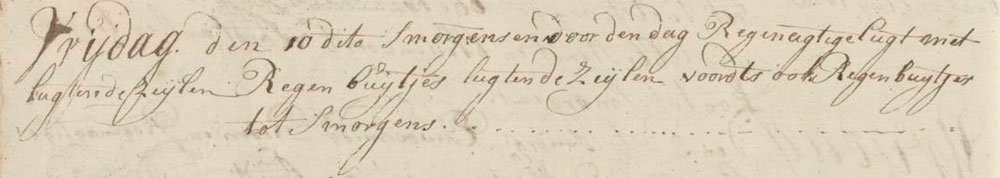 Vrijdag den 10 dito Smorgens en door den dag Regenagtige lugt met
lugtende Zeijlen Regen buijtjes lugtende Zeijlen voords ook Regenbuijtjes
tot Smorgens.